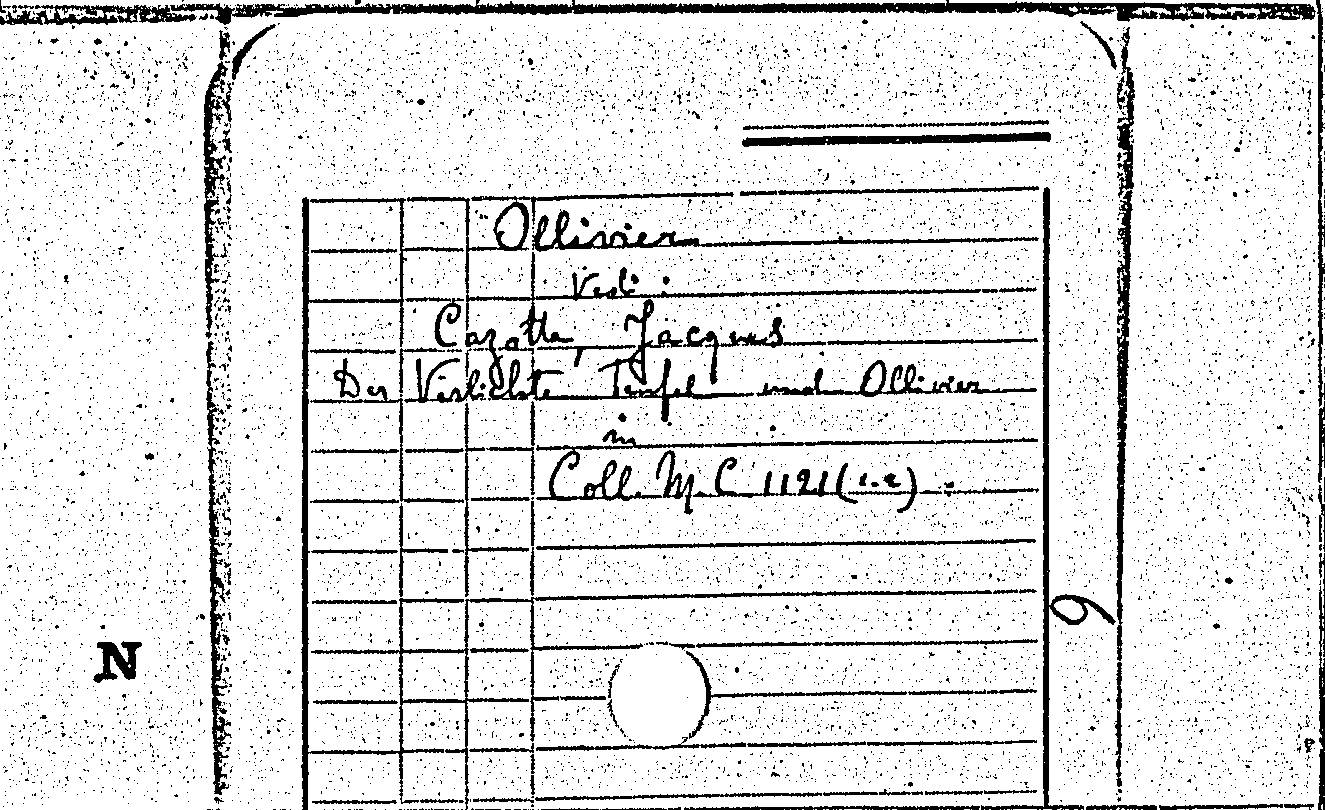 Ollivier
Vedi :
Cazotte, Jacques
Der Verliebte Teufel und Ollivier
in
Coll. M. C 1121 (1.2) .
6
N